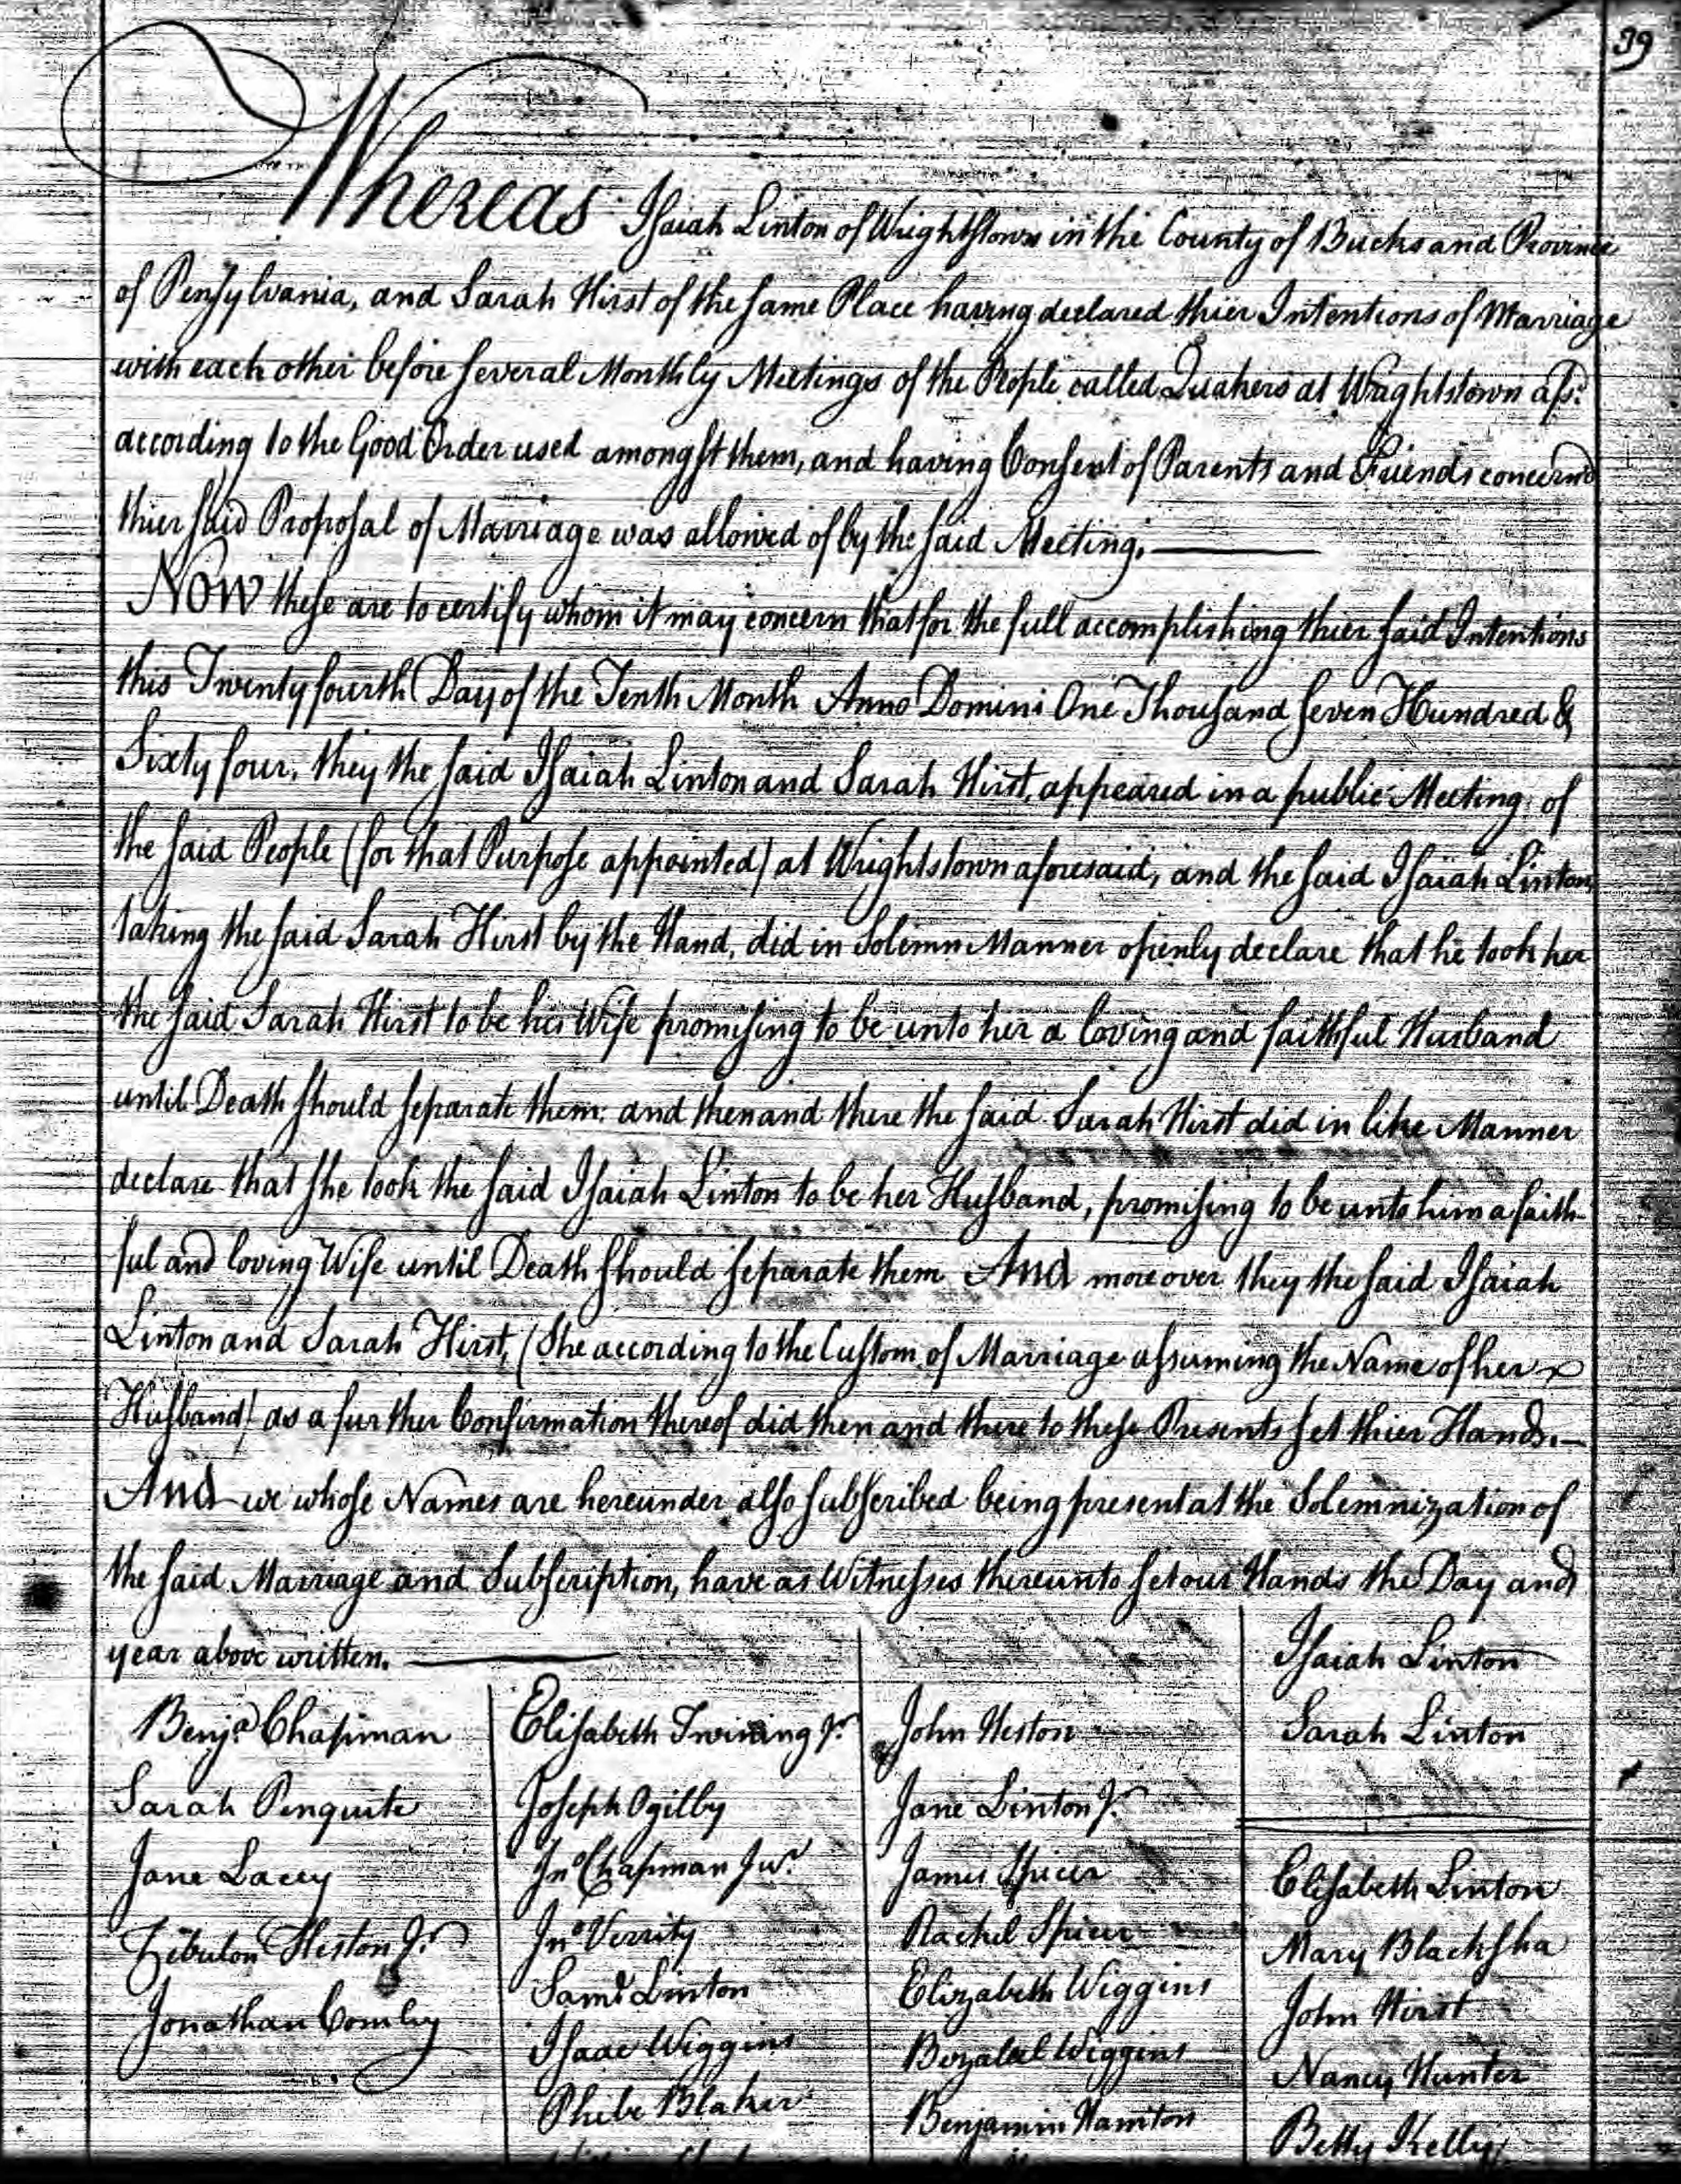 39
Whereas Isaiah Linton of Wrightstown in the County of Bucks and Province
of Pensylvania, and Sarah Hirst of the same Place having declared thier Intentions of Marriage
with each other before several Monthly Meetings of the People called Quakers at Wrightstown afsd
according to the Good Order used amongst them, and having Consent of Parents and Friends concernd
thier said Proposal of Marriage was allowed of by the said Meeting.
Now these are to certify whom it may concern that for the full accomplishing thier said Intentions
this Twenty fourth Day of the Tenth Month Anno Domini One Thousand seven Hundred &
Sixty four, they the said Isaiah Linton and Sarah Hirst, appeared in a public Meeting of
the said People (for that Purpose appointed) at Wrightstown aforesaid, and the said Isaiah Linton
taking the said Sarah Hirst by the Hand, did in Solemn Manner openly declare that he took her
the said Sarah Hirst to be his Wife promising to be unto her a loving and faithful Husband
until Death should separate them: and then and there the said Sarah Hirst did in like Manner
declare that she took the said Isaiah Linton to be her Husband, promising to be unto him a faith-
ful and loving Wife until Death should separate them And moreover they the said Isaiah
Linton and Sarah Hirst, (She according to the Custom of Marriage assuming the Name of her
Husband) as a further Confirmation thereof did then and there to these Presents set thier Hands.
And we whose Names are hereunder also subscribed being present at the Solemnization of
the said Marriage and Subscription, have as Witnesses thereunto set our Hands the Day and
year above written.
Benja Chapman
Sarah Penquite
Jane Lacey
Zebulon Heston Jr
Jonathan Comly
Elisabeth Twining Jr
Joseph Ogilby
Jno Chapman Junr
Jno Verrity
Saml Linton
Isaac Wiggins
Phebe Blaker
John Heston
Jane Linton Jr
James Spicer
Rachel Spicer
Elizabeth Wiggins
Bezaleel Wiggins
Benjamin Hamton
Isaiah Linton
Sarah Linton
Elisabeth Linton
Mary Blacksha
John Hirst
Nancy Hunter
Betty Kelly